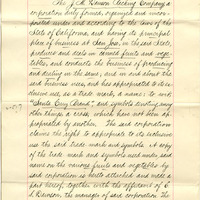 The J. M. Dawson Packing Company a
corporation duly formed, organized and incor-
porated under and according to the laws of the
State of California, and having its principal
place of business at San Jose, in the said State,
produces and deals in canned fruits and vege-
tables, and conducts the business of producing
and dealing in the same, and in and about the
said business uses, and has appropriated to its ex-
clusive use, as a trade mark, a name: to wit:
Brand", and symbols denoting among
other things a cross, which have not been ap-
propriated by another. The said corporation
claims the right to appropriate to its exclusive
use the said trade mark and symbols. A copy
of the trade mark and symbols used and
name on the various fruits and vegetables by
said corporation is hereto attached and made a
part hereof, together with the affidavit of E.
L. Dawson, the manager of said corporation. The